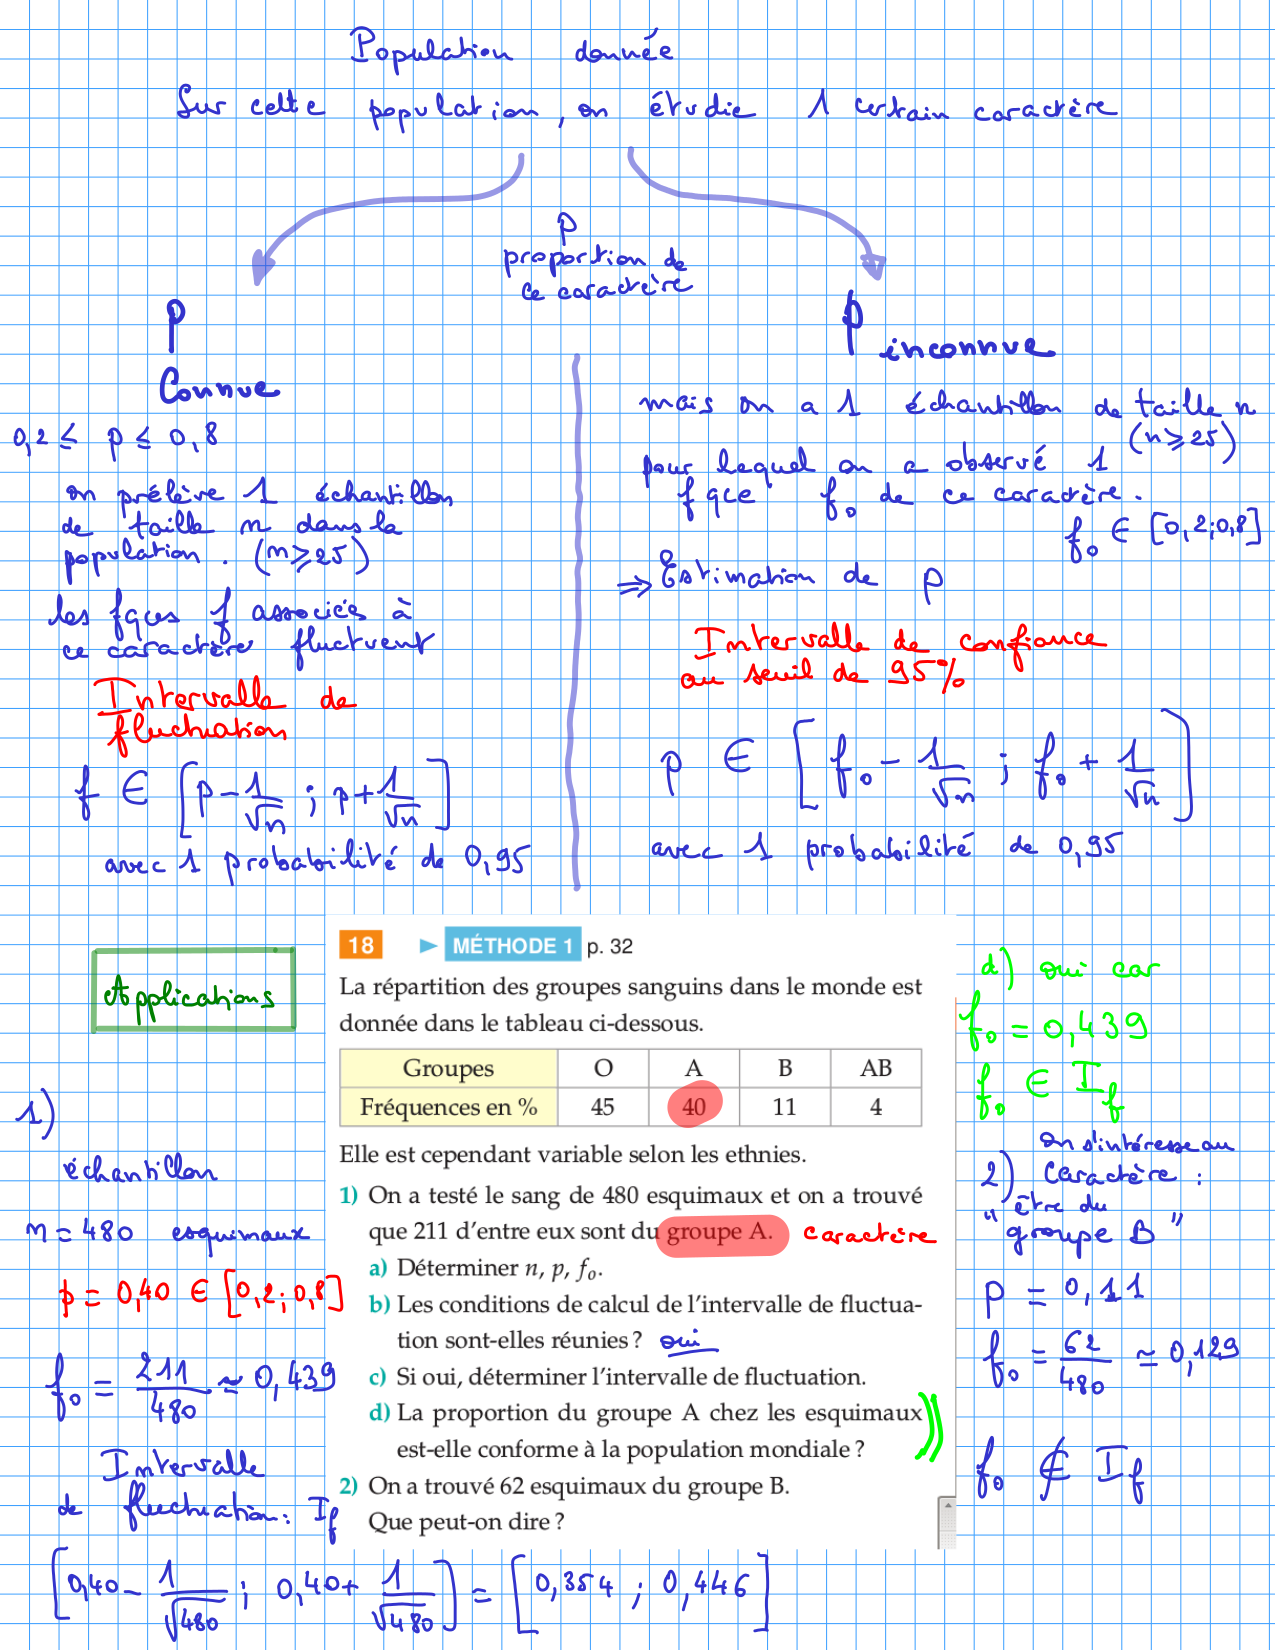 Population donnée
Sur cette population, on étudie 1 certain caractère
p
proportion de
ce caractère
p
Connue
0,2 ≤ p ≤ 0,8
on prélève 1 échantillon
de taille n dans la
population. (n ≥ 25)
les fqces f associées à
ce caractère fluctuent
Intervalle de
fluctuation
f ∈ [p - 1/√n ; p + 1/√n]
avec 1 probabilité de 0,95
p inconnue
mais on a 1 échantillon de taille n
(n ≥ 25)
pour lequel on a observé 1
fqce f₀ de ce caractère.
f₀ ∈ [0,2;0,8]
⇒ Estimation de p
Intervalle de confiance
au seuil de 95%
p ∈ [f₀ - 1/√n ; f₀ + 1/√n]
avec 1 probabilité de 0,95
Applications
18 ► MÉTHODE 1 p. 32
La répartition des groupes sanguins dans le monde est
donnée dans le tableau ci-dessous.
Groupes O A B AB
Fréquences en % 45 40 11 4
Elle est cependant variable selon les ethnies.
1) On a testé le sang de 480 esquimaux et on a trouvé
que 211 d'entre eux sont du groupe A. caractère
a) Déterminer n, p, f₀.
b) Les conditions de calcul de l'intervalle de fluctua-
tion sont-elles réunies ? oui
c) Si oui, déterminer l'intervalle de fluctuation.
d) La proportion du groupe A chez les esquimaux
est-elle conforme à la population mondiale ?
2) On a trouvé 62 esquimaux du groupe B.
Que peut-on dire ?
1)
échantillon
n = 480 esquimaux
p = 0,40 ∈ [0,2;0,8]
f₀ = 211/480 ≃ 0,439
Intervalle
de fluctuation : If
[0,40 - 1/√480 ; 0,40 + 1/√480] = [0,354 ; 0,446]
d) oui car
f₀ = 0,439
f₀ ∈ If
on s'intéresse au
2) caractère :
"être du
groupe B"
p = 0,11
f₀ = 62/480 ≃ 0,129
f₀ ∉ If